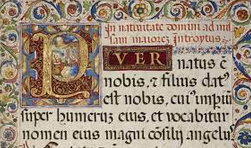 In nativitate domini ad mi
sam maiorez Introytus
PVER
natus ē
nobis, & filius datꝰ
est nobis, cuiꝰ impiū
super humeruz eius, et vocabitur
nomen eius magni cōsilij angelu